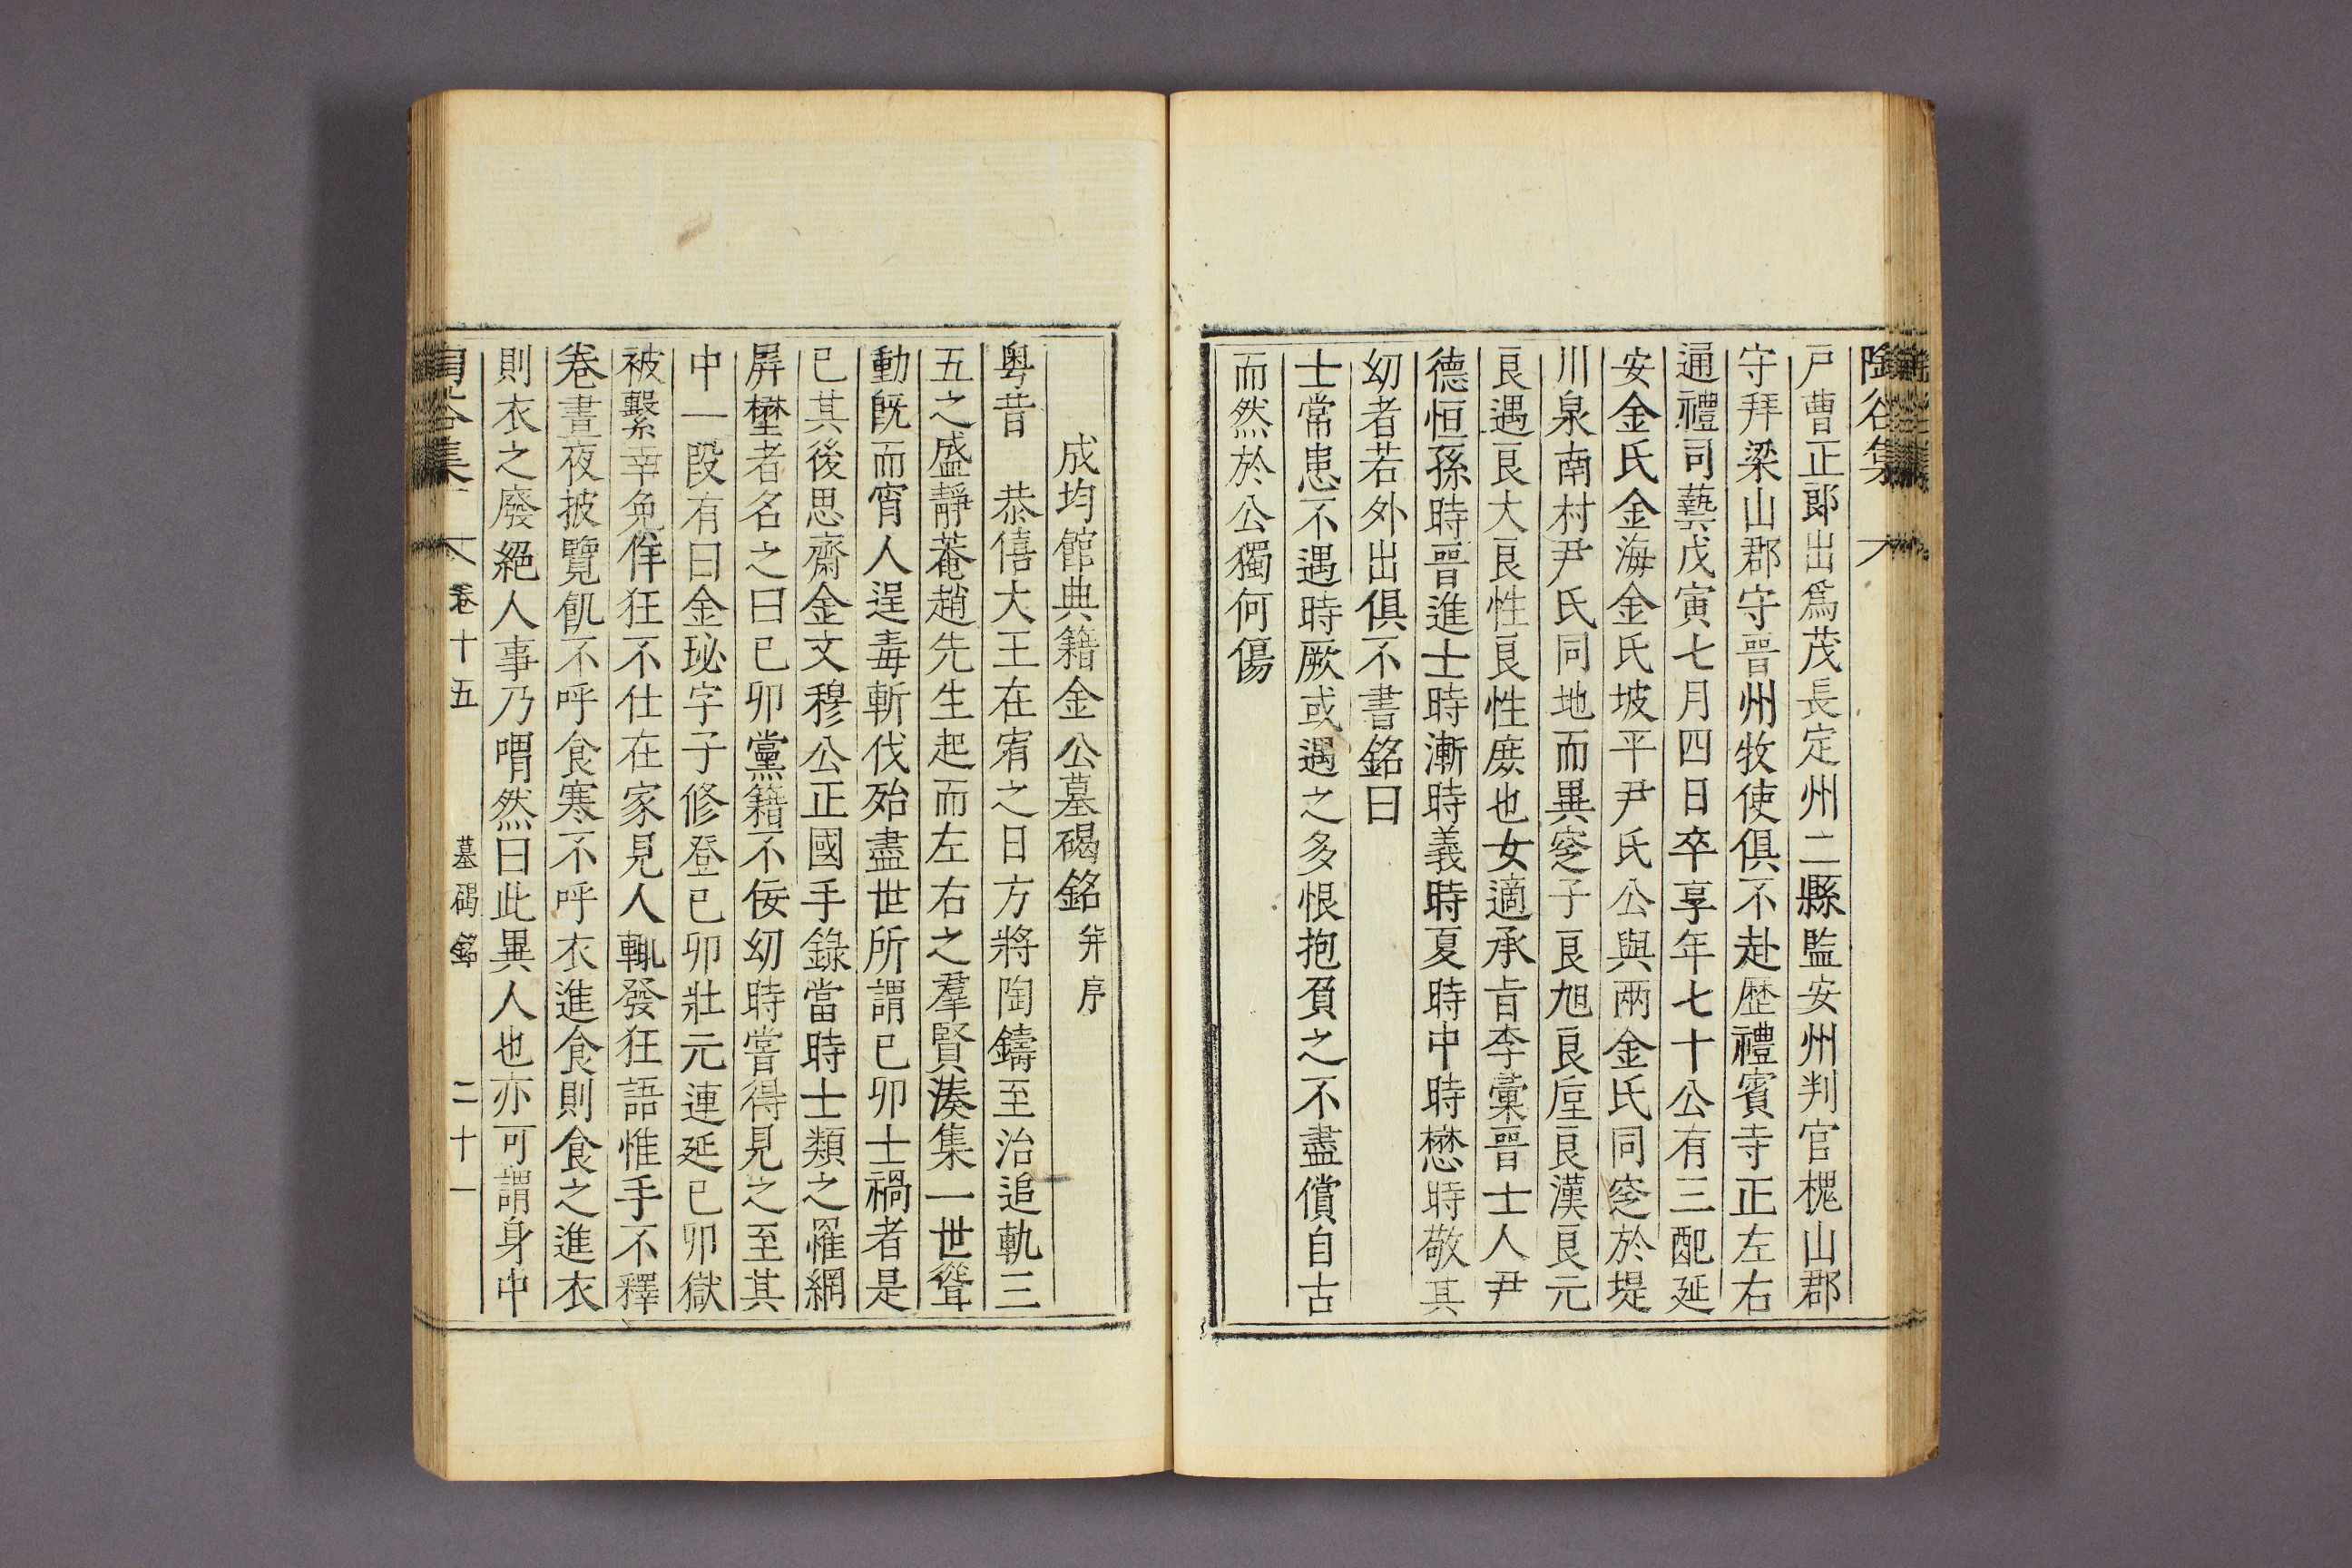 陶谷集
戶曹正郞出爲茂長定州二縣監安州判官槐山郡
守拜梁山郡守晉州牧使俱不赴歷禮賓寺正左右
通禮司藝戊寅七月四日卒享年七十公有三配延
安金氏金海金氏坡平尹氏公與兩金氏同窆於堤
川泉南村尹氏同地而異窆子良旭良垕良漢良元
良遇良大良性良性庶也女適承旨李彙晉士人尹
德恒孫時晉進士時漸時義時夏時中時懋時敬其
幼者若外出俱不書銘曰
士常患不遇時厥或遇之多恨抱負之不盡償自古
而然於公獨何傷
成均館典籍金公墓碣銘 幷序
粤昔 恭僖大王在宥之日方將陶鑄至治追軌三
五之盛靜菴趙先生起而左右之羣賢湊集一世聳
動旣而宵人逞毒斬伐殆盡世所謂己卯士禍者是
已其後思齋金文穆公正國手錄當時士類之罹網
屛壄者名之曰己卯黨籍不佞幼時嘗得見之至其
中一段有曰金珌字子修登己卯壯元連延己卯獄
被繫幸免佯狂不仕在家見人輒發狂語惟手不釋
卷晝夜披覽飢不呼食寒不呼衣進食則食之進衣
則衣之廢絕人事乃喟然曰此異人也亦可謂身中
陶谷集 卷十五 墓碣銘 二十一